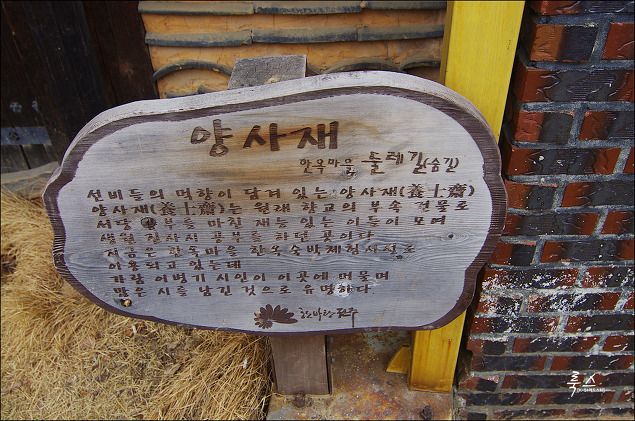 양사재
한옥마을 둘레길(숨길)
선비들의 먹향이 담겨 있는 양사재(養士齋)
양사재(養士齋)는 원래 향교의 부속 건물로
서당 공부를 마친 재능 있는 이들이 모여
생원 진사시 공부를 하던 곳이다
지금은 한옥마을 한옥숙박체험시설로
이용되고 있는데
가람 이병기 시인이 이곳에 머물며
많은 시를 남긴 것으로 유명하다
한바탕전주
룩스